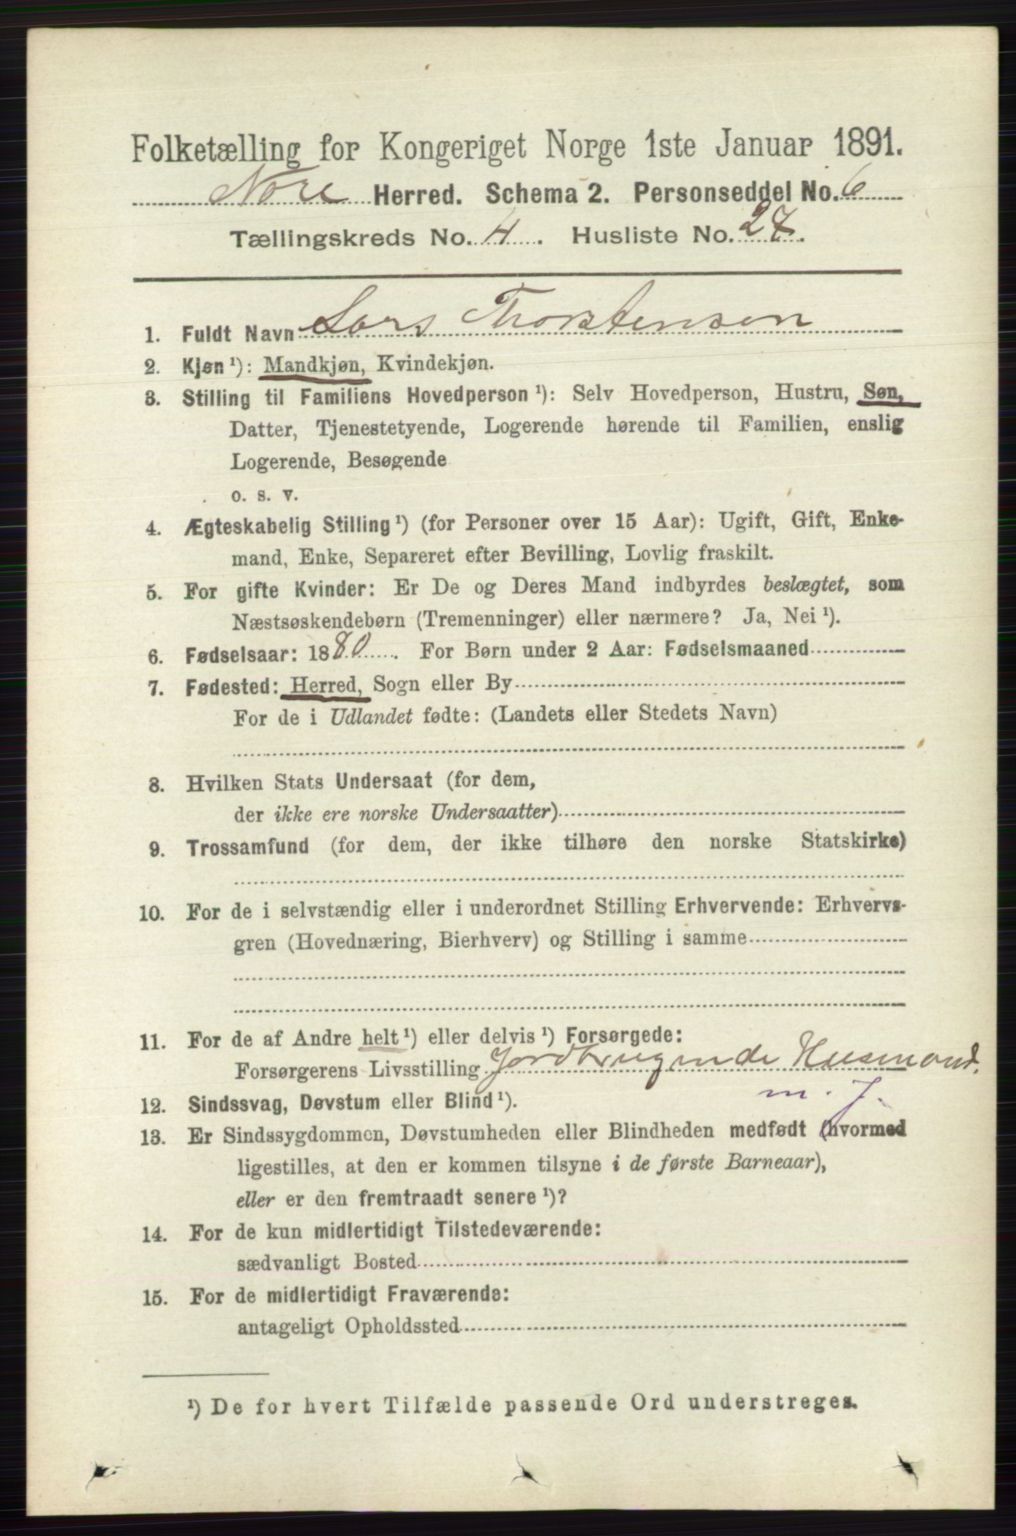 Folketælling for Kongeriget Norge 1ste Januar 1891.
Nore Herred. Schema 2. Personseddel No. 6
Tællingskreds No. 4. Husliste No. 27.
1. Fuldt Navn Lars Thorstensen
2. Kjøn ¹): Mandkjøn, Kvindekjøn.
3. Stilling til Familiens Hovedperson ¹): Selv Hovedperson, Hustru, Søn,
Datter, Tjenestetyende, Logerende hørende til Familien, enslig
Logerende, Besøgende
o. s. v.
4. Ægteskabelig Stilling ¹) (for Personer over 15 Aar): Ugift, Gift, Enke-
mand, Enke, Separeret efter Bevilling, Lovlig fraskilt.
5. For gifte Kvinder: Er De og Deres Mand indbyrdes beslægtet, som
Næstsøskendebørn (Tremenninger) eller nærmere? Ja, Nei ¹).
6. Fødselsaar: 1880. For Børn under 2 Aar: Fødselsmaaned
7. Fødested: Herred, Sogn eller By
For de i Udlandet fødte: (Landets eller Stedets Navn)
8. Hvilken Stats Undersaat (for dem,
der ikke ere norske Undersaatter)
9. Trossamfund (for dem, der ikke tilhøre den norske Statskirke)
10. For de i selvstændig eller i underordnet Stilling Erhvervende: Erhvervs-
gren (Hovednæring, Bierhverv) og Stilling i samme
11. For de af Andre helt ¹) eller delvis ¹) Forsørgede:
Forsørgerens Livsstilling Jordbrugende Husmand.
12. Sindssvag, Døvstum eller Blind ¹). m. J.
13. Er Sindssygdommen, Døvstumheden eller Blindheden medfødt (hvormed
ligestilles, at den er kommen tilsyne i de første Barneaar),
eller er den fremtraadt senere ¹)?
14. For de kun midlertidigt Tilstedeværende:
sædvanligt Bosted
15. For de midlertidigt Fraværende:
antageligt Opholdssted
¹) De for hvert Tilfælde passende Ord understreges.